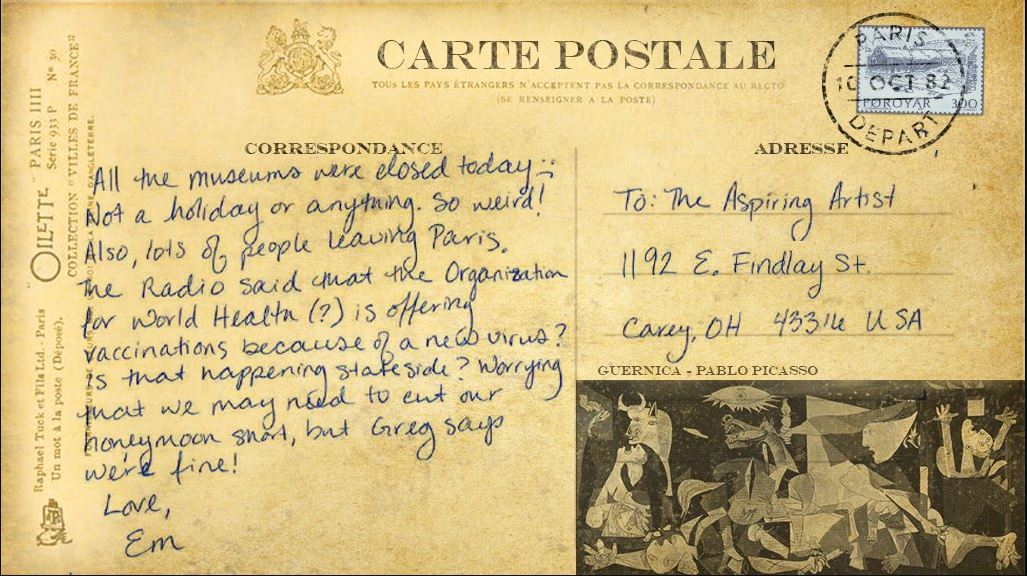 CARTE POSTALE
TOUS LES PAYS ÉTRANGERS N'ACCEPTENT PAS LA CORRESPONDANCE AU RECTO
(SE RENSEIGNER A LA POSTE)
PARIS
10 OCT 82
DEPART
FØROYAR 300
"OILETTE" PARIS IIII
Serie 933 P Nº 30
COLLECTION "VILLES DE FRANCE"
Raphael Tuck et Fils Ltd.- Paris
Un mot à la poste (Déposé).
CORRESPONDANCE
All the museums were closed today :
Not a holiday or anything. So weird!
Also, lots of people leaving Paris.
The Radio said that the Organization
for World Health (?) is offering
vaccinations because of a new virus?
Is that happening stateside? Worrying
that we may need to cut our
honeymoon short, but Greg says
we're fine!
Love,
Em
ADRESSE
To: The Aspiring Artist
1192 E. Findlay St.
Carey, OH 43316 USA
GUERNICA - PABLO PICASSO